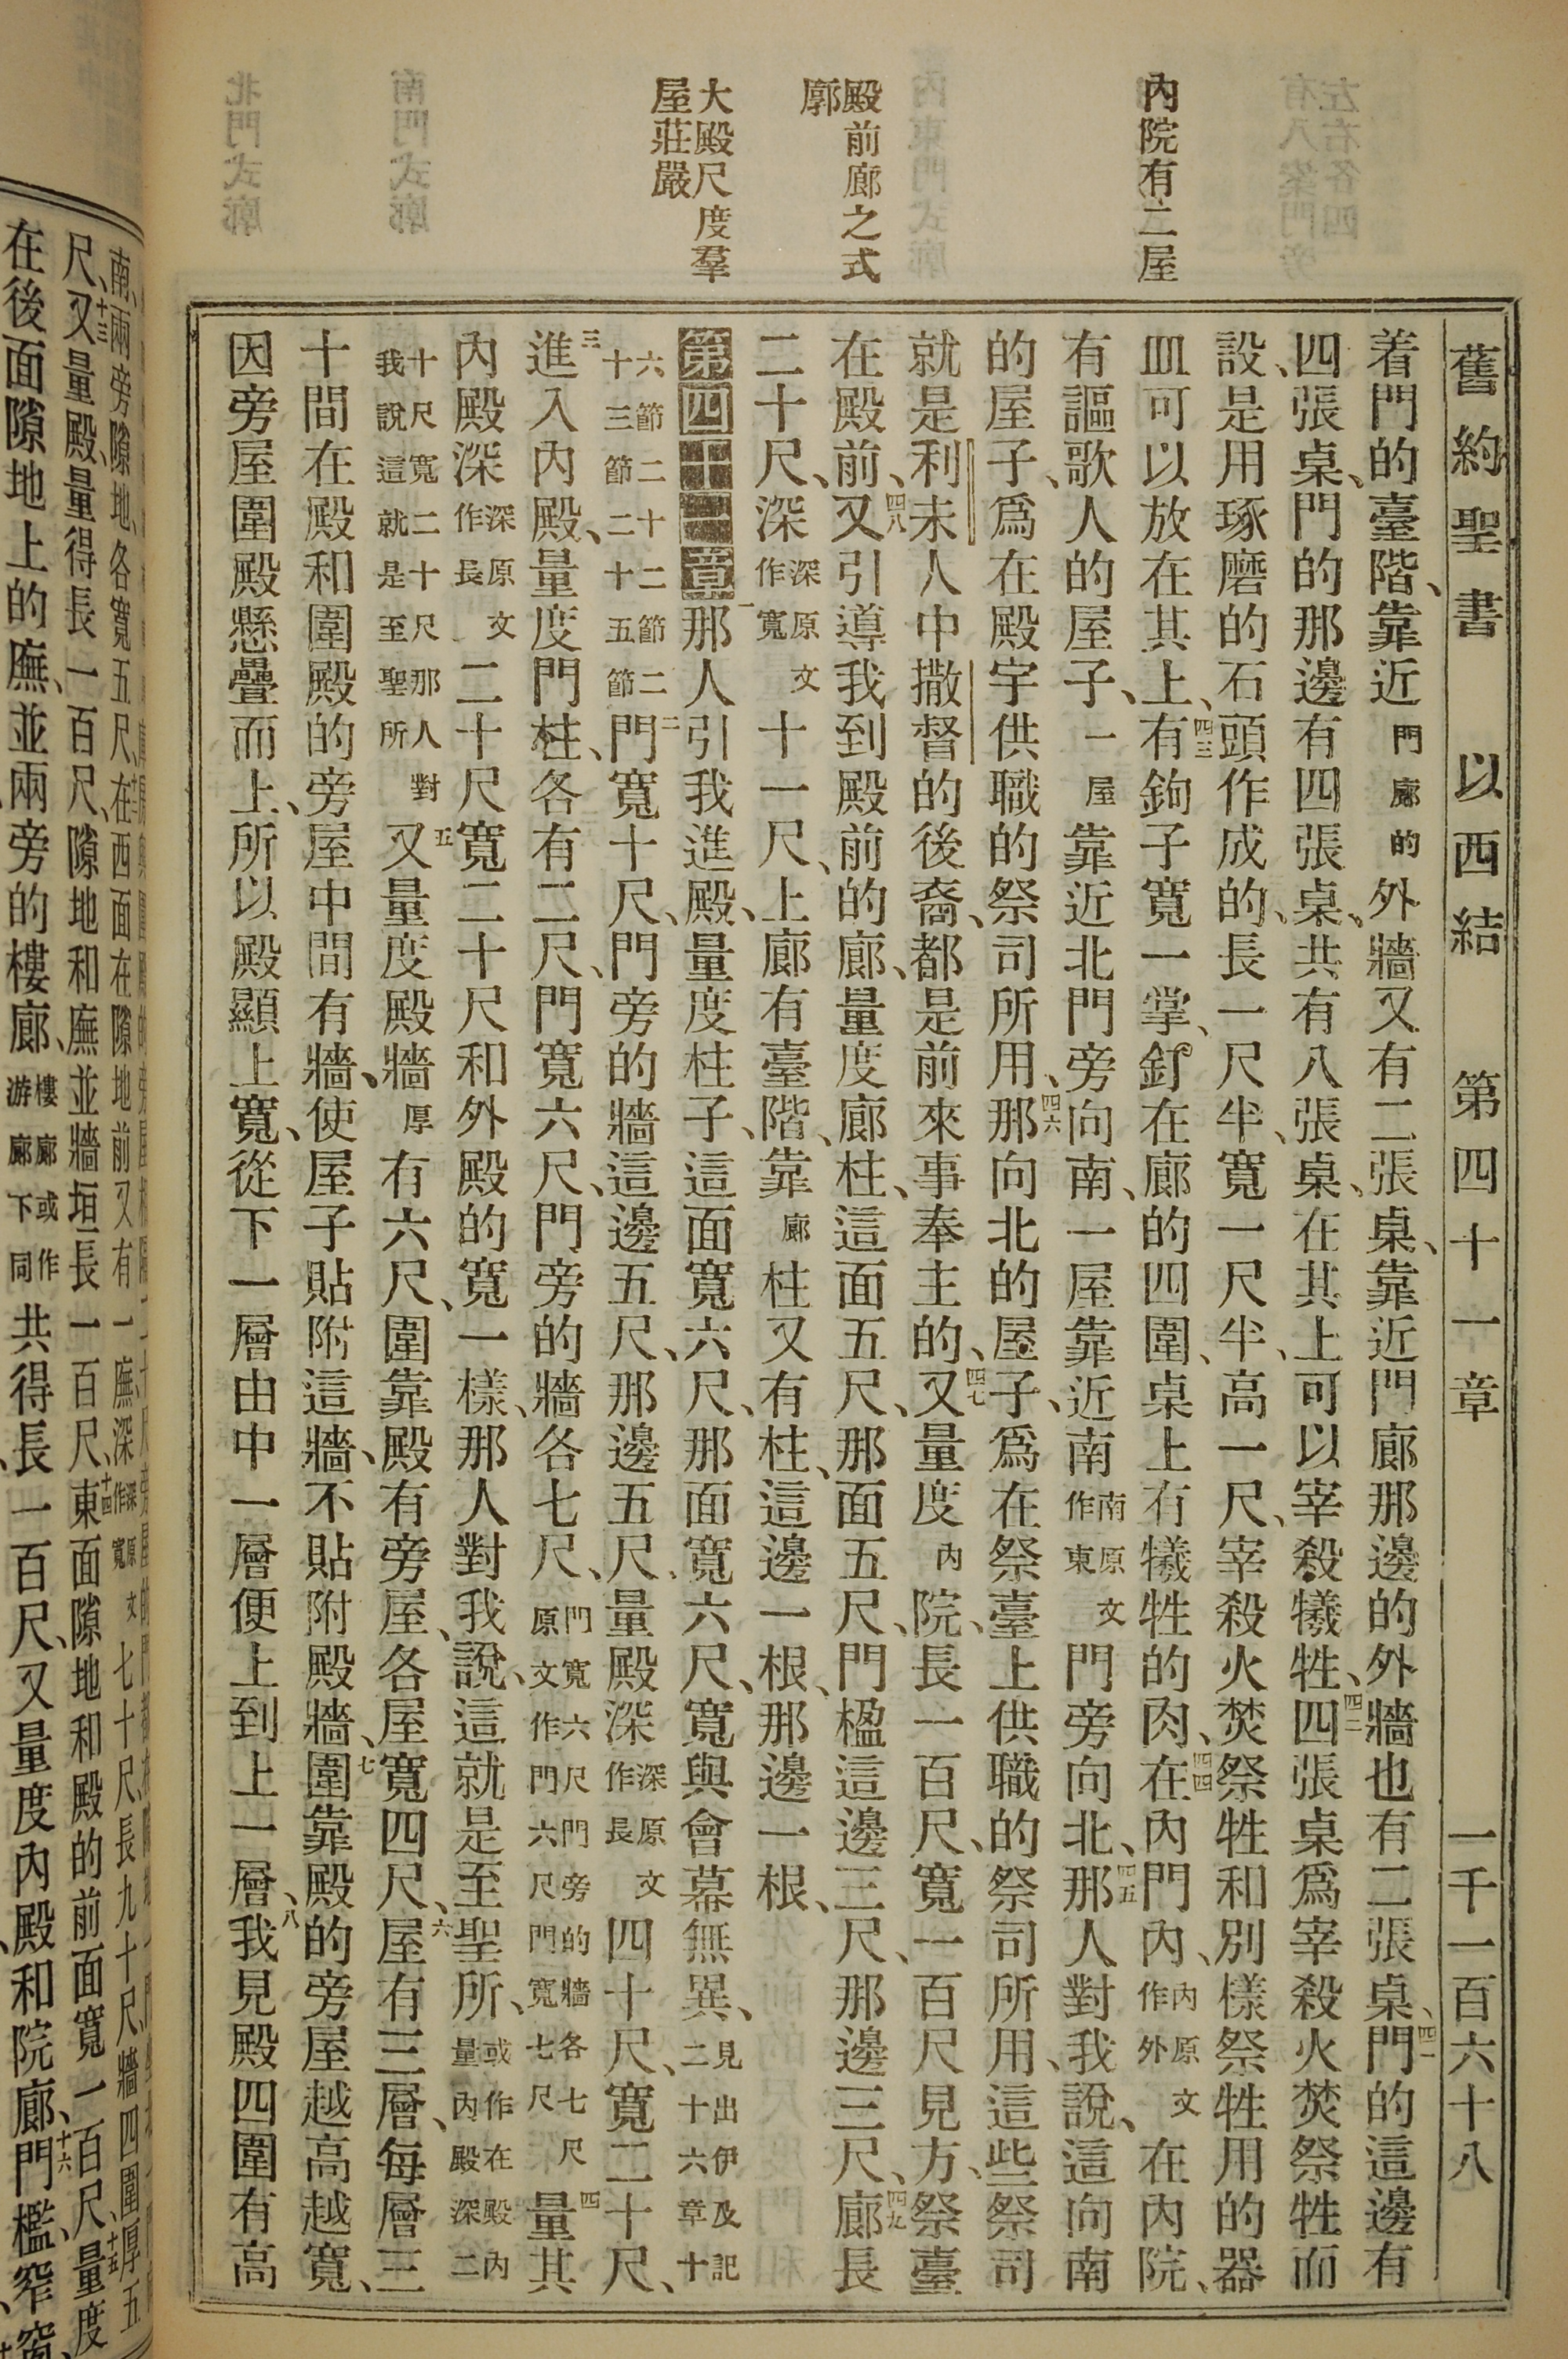 舊約聖書 以西結 第四十一章 一千一百六十八
內院有二屋
殿前廊之式廓
大殿尺度羣屋莊嚴
着門的臺階、靠近門廊的外牆又有二張桌、靠近門廊那邊的外牆也有二張桌、四一門的這邊有
四張桌、門的那邊有四張桌、共有八張桌、在其上可以宰殺犧牲、四二四張桌爲宰殺火焚祭牲而
設、是用琢磨的石頭作成的、長一尺半、寬一尺半、高一尺、宰殺火焚祭牲和別樣祭牲用的器
皿可以放在其上、四三有鉤子寬一掌、釘在廊的四圍、桌上有犧牲的肉、四四在內門內、內原文作外在內院、
有謳歌人的屋子、一屋靠近北門旁向南、一屋靠近南南原文作東門旁向北、四五那人對我說、這向南
的屋子、爲在殿宇供職的祭司所用、四六那向北的屋子、爲在祭臺上供職的祭司所用、這些祭司
就是利未人中撒督的後裔、都是前來事奉主的、四七又量度內院、長一百尺、寬一百尺見方、祭臺
在殿前、四八又引導我到殿前的廊、量度廊柱、這面五尺、那面五尺、門楹這邊三尺、那邊三尺、四九廊長
二十尺、深深原文作寬十一尺、上廊有臺階、靠廊柱又有柱、這邊一根、那邊一根、
第四十一章一那人引我進殿、量度柱子、這面寬六尺、那面寬六尺、寬與會幕無異、見出伊及記二十六章十
六節二十二節二十三節二十五節二門寬十尺、門旁的牆這邊五尺、那邊五尺、量殿深深原文作長四十尺、寬二十尺、
三進入內殿、量度門柱、各有二尺、門寬六尺、門旁的牆各七尺、門寬六尺門旁的牆各七尺原文作門六尺門寬七尺四量其
內殿深深原文作長二十尺寬二十尺和外殿的寬一樣、那人對我說、這就是至聖所、或作在殿內量內殿深二
十尺寬二十尺那人對我說這就是至聖所五又量度殿牆厚有六尺、圍靠殿有旁屋、各屋寬四尺、六屋有三層、每層三
十間在殿和圍殿的旁屋中間有牆、使屋子貼附這牆、不貼附殿牆、七圍靠殿的旁屋越高越寬、
因旁屋圍殿懸疊而上、所以殿顯上寬、從下一層由中一層便上到上一層、八我見殿四圍有高
南、兩旁隙地、各寬五尺、在西面在隙地前又有一廡深深原文作寬七十尺、長九十尺、牆四圍厚五
尺、十三又量殿、量得長一百尺、隙地和廡並牆垣長一百尺、十四東面隙地和殿的前面寬一百尺、十五量度
在後面隙地上的廡、並兩旁的樓廊、樓廊或作游廊下同共得長一百尺、又量度內殿和院廊、十六門檻窄窗、